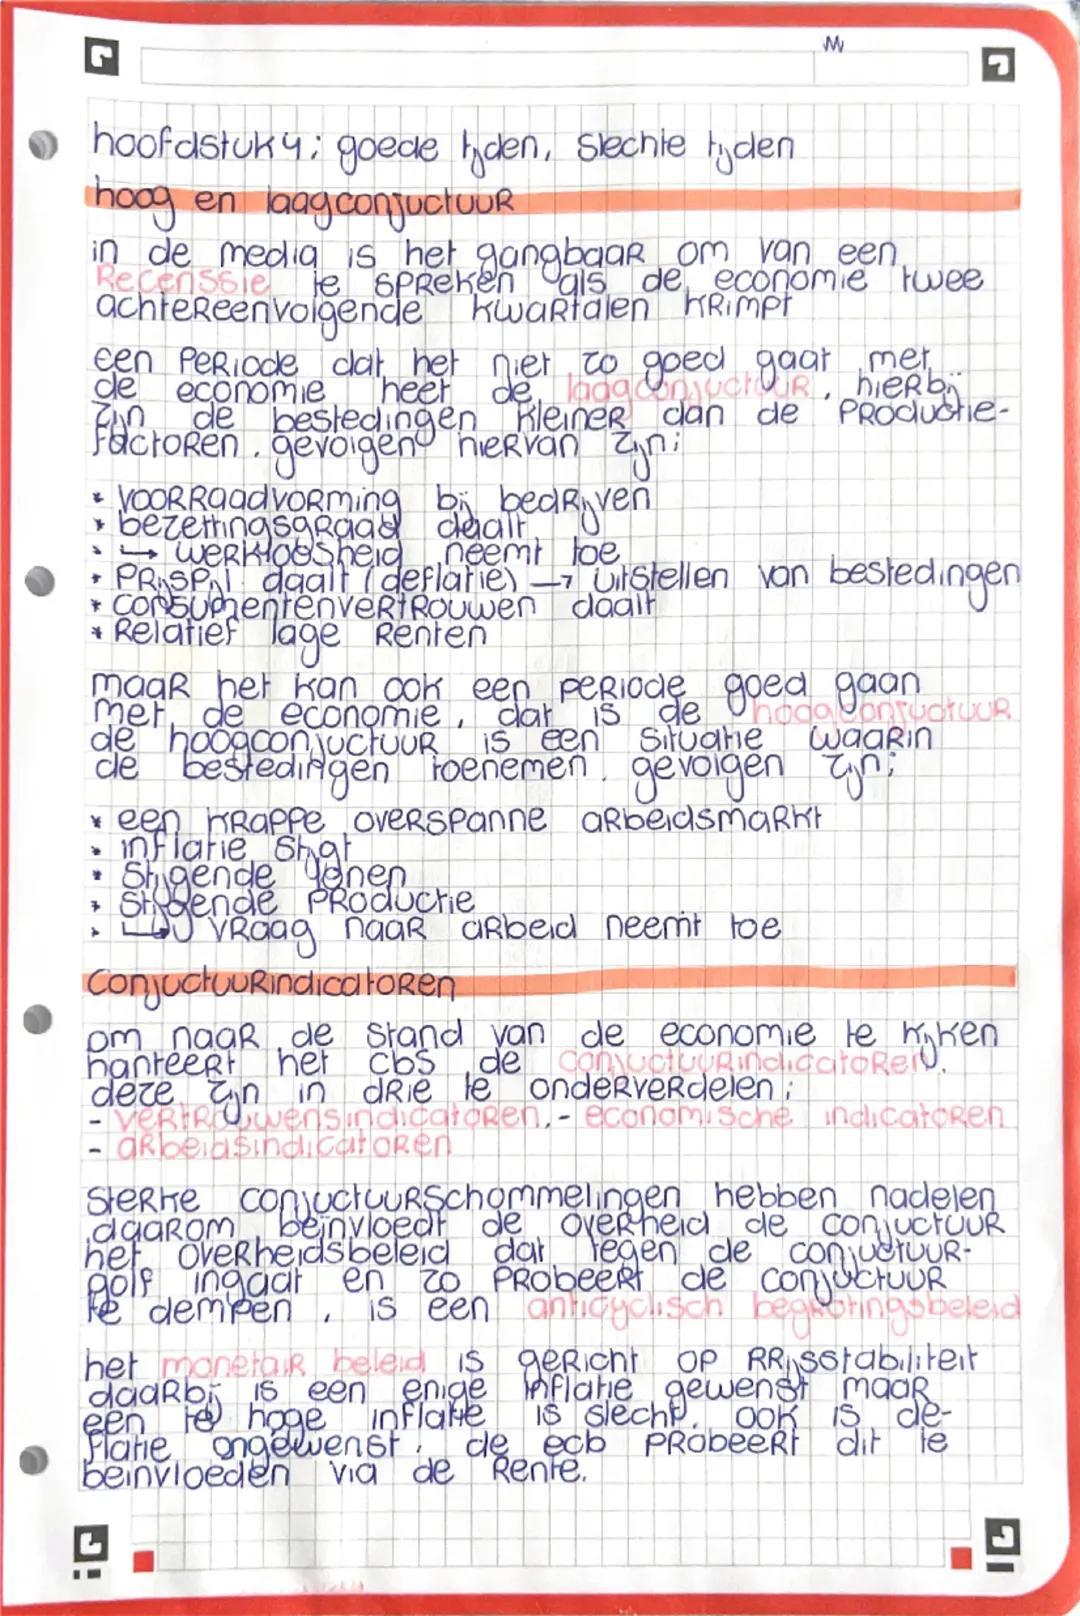 hoofdstuk 4: goede tijden, slechte tijden
hoog en laagconjuctuur
in de media is het gangbaar om van een
Recenssie te spreken als de economie twee
achtereenvolgende kwartalen krimpt
een periode dat het niet zo goed gaat met
de economie heet de laagconjuctuur, hierbij
zijn de bestedingen kleiner dan de productie-
factoren. gevolgen hiervan zijn:
* voorraadvorming bij bedrijven
* bezettingsgraad daalt
* ↳ werkloosheid neemt toe
* prijspijl daalt (deflatie) → uitstellen van bestedingen
* consumentenvertrouwen daalt
* Relatief lage renten
maar het kan ook een periode goed gaan
met de economie, dat is de hoogconjuctuur
de hoogconjuctuur is een situatie waarin
de bestedingen toenemen. gevolgen zijn:
* een krappe overspanne arbeidsmarkt
* inflatie stijgt
* stijgende lonen
* stijgende productie
* ↳ vraag naar arbeid neemt toe
Conjuctuurindicatoren
om naar de stand van de economie te kijken
hanteert het cbs de conjuctuurindicatoren.
deze zijn in drie te onderverdelen:
- vertrouwensindicatoren, - economische indicatoren
- arbeidsindicatoren
sterke conjuctuurschommelingen hebben nadelen
daarom beïnvloedt de overheid de conjuctuur
het overheidsbeleid dat tegen de conjuctuur-
golf ingaat en zo probeert de conjuctuur
te dempen, is een anticyclisch begrotingsbeleid
het monetair beleid is gericht op prijsstabiliteit
daarbij is een enige inflatie gewenst maar
een te hoge inflatie is slecht. ook is de-
flatie ongewenst. de ecb probeert dit te
beinvloeden via de Rente.